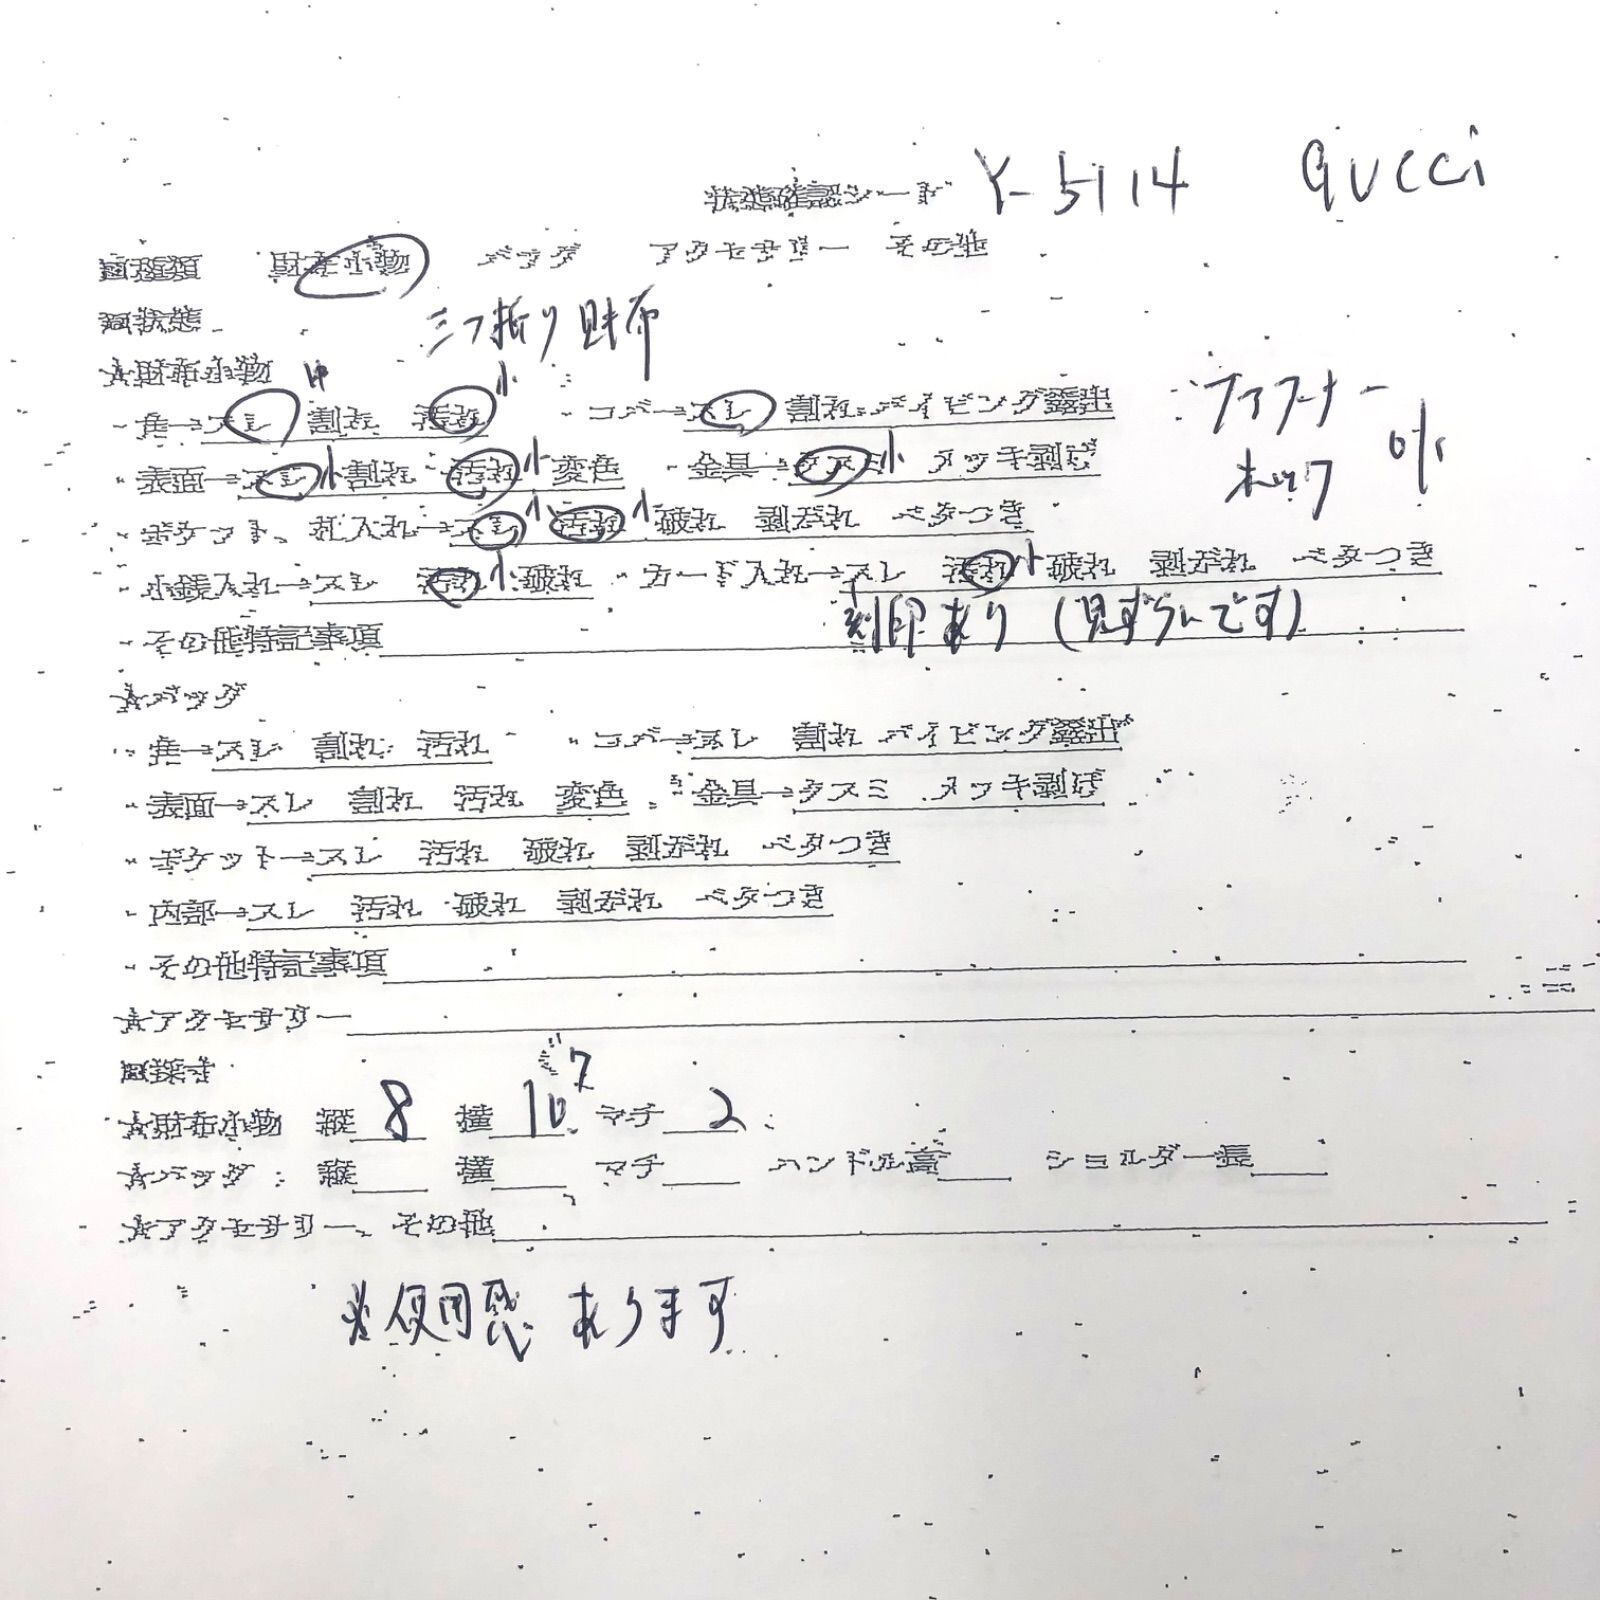 状態確認シート Y-5114 GUCCI
■種類 財布小物 バッグ アクセサリー その他
■状態
三つ折り財布
★財布小物
・角→スレ 中 割れ 汚れ 小 ・コバ→スレ 割れ パイピング露出 ファスナー
・表面→スレ 小 割れ 汚れ 小 変色 ・金具→クスミ 小 メッキ剥げ ホック ok
・ポケット、札入れ→スレ 小 汚れ 小 破れ 剥がれ ベタつき
・小銭入れ→スレ 汚れ 小 破れ ・カード入れ→スレ 汚れ 小 破れ 剥がれ ベタつき
・その他特記事項 刻印あり (見ずらいです)
★バッグ
・角→スレ 割れ 汚れ ・コバ→スレ 割れ パイピング露出
・表面→スレ 割れ 汚れ 変色 ・金具→クスミ メッキ剥げ
・ポケット→スレ 汚れ 破れ 剥がれ ベタつき
・内部→スレ 汚れ 破れ 剥がれ ベタつき
・その他特記事項
★アクセサリー
■採寸
★財布小物 縦 8 横 10.7 マチ 2
★バッグ 縦 横 マチ ハンドル高 ショルダー長
★アクセサリー、その他
※使用感あります